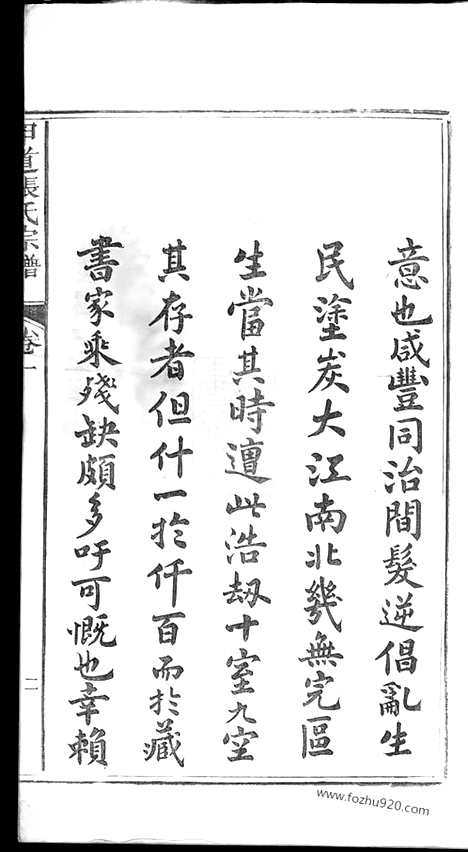 意也咸豐同治間髮逆倡亂生
民塗炭大江南北幾無完區
生當其時遭此浩劫十室九空
其存者但什一於仟百而於藏
書家乘殘缺頗多吁可慨也幸賴
田道張氏宗譜
卷一
二
www.fozhu920.com